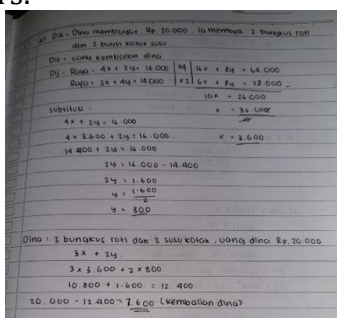 rs.
a) Dik = Dina membayar Rp. 20.000. Ia membeli 2 bungkus roti
dan 2 buah kotak susu
Dit = uang kembalian dina
Dij = Raya = 4x + 2y = 16.000 | x4 | 16x + 8y = 64.000
Raya = 3x + 4y = 14.000 | x2 | 6x + 8y = 28.000 -
10x = 36.000
substitusi = x = 36.000
4x + 2y = 16.000
4 x 3.600 + 2y = 16.000 x = 3.600
14.400 + 2y = 16.000
2y = 16.000 - 14.400
2y = 1.600
y = 1.600
2
y = 800
Dina = 3 bungkus roti dan 2 susu kotak, uang dina Rp. 20.000
3x + 2y.
3 x 3.600 + 2 x 800
10.800 + 1.600 = 12.400
20.000 - 12.400 = 7.600 (kembalian dina)